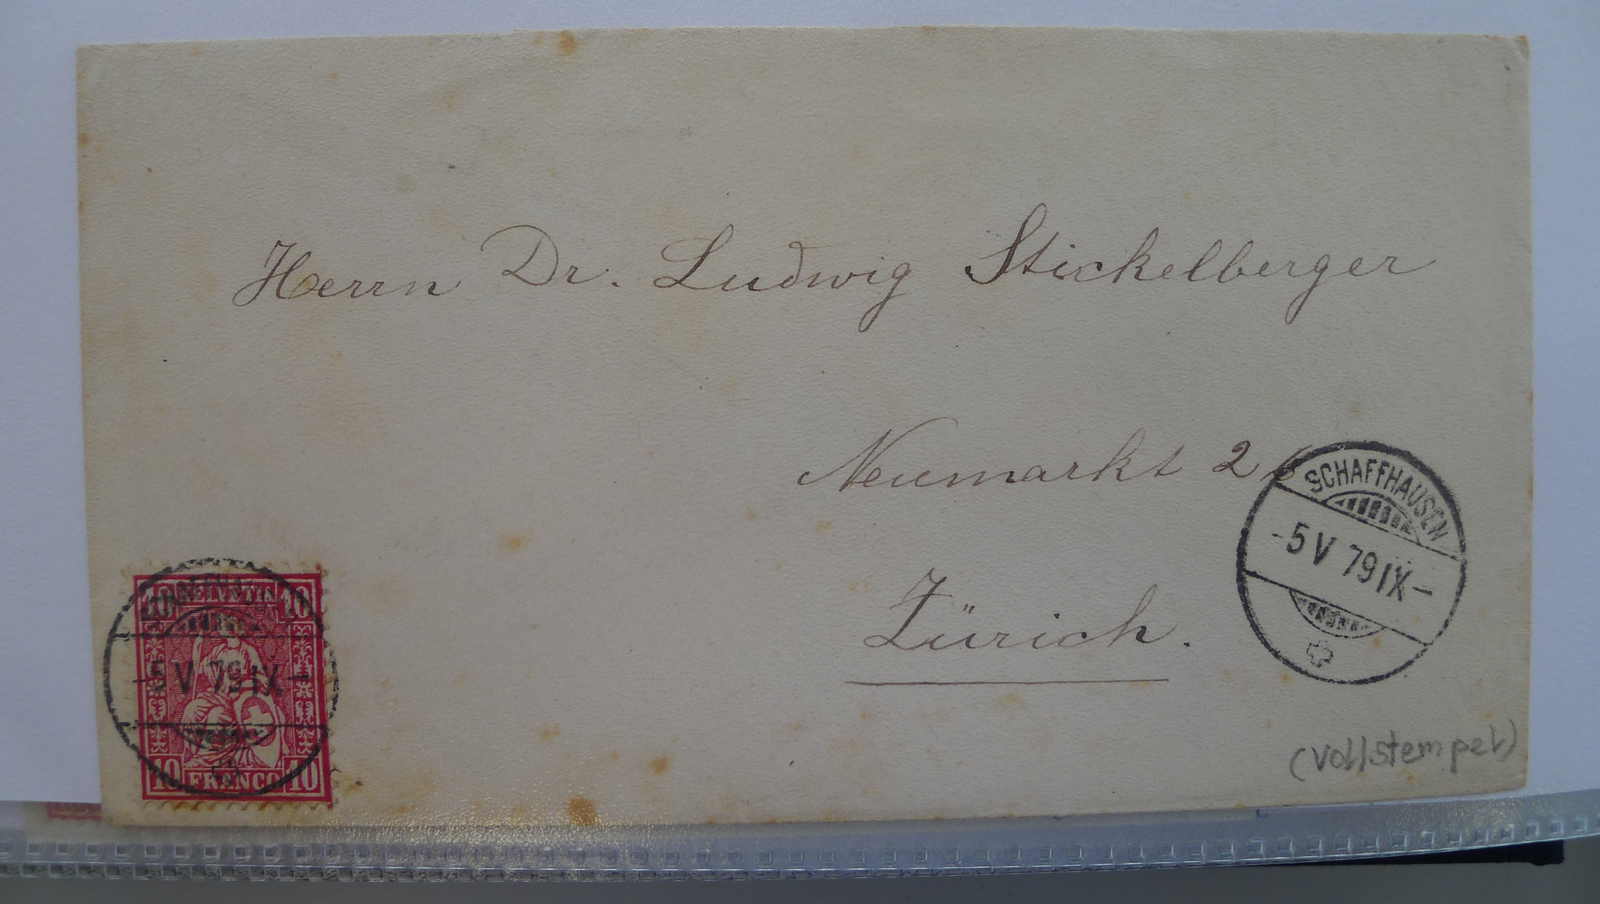 Herrn Dr. Ludwig Stickelberger
Neumarkt 2
Zürich.
SCHAFFHAUSEN
-5 V 79 IX-
(Vollstempel)
10 HELVETIA 10
-5 V 79 IX-
10 FRANCO 10